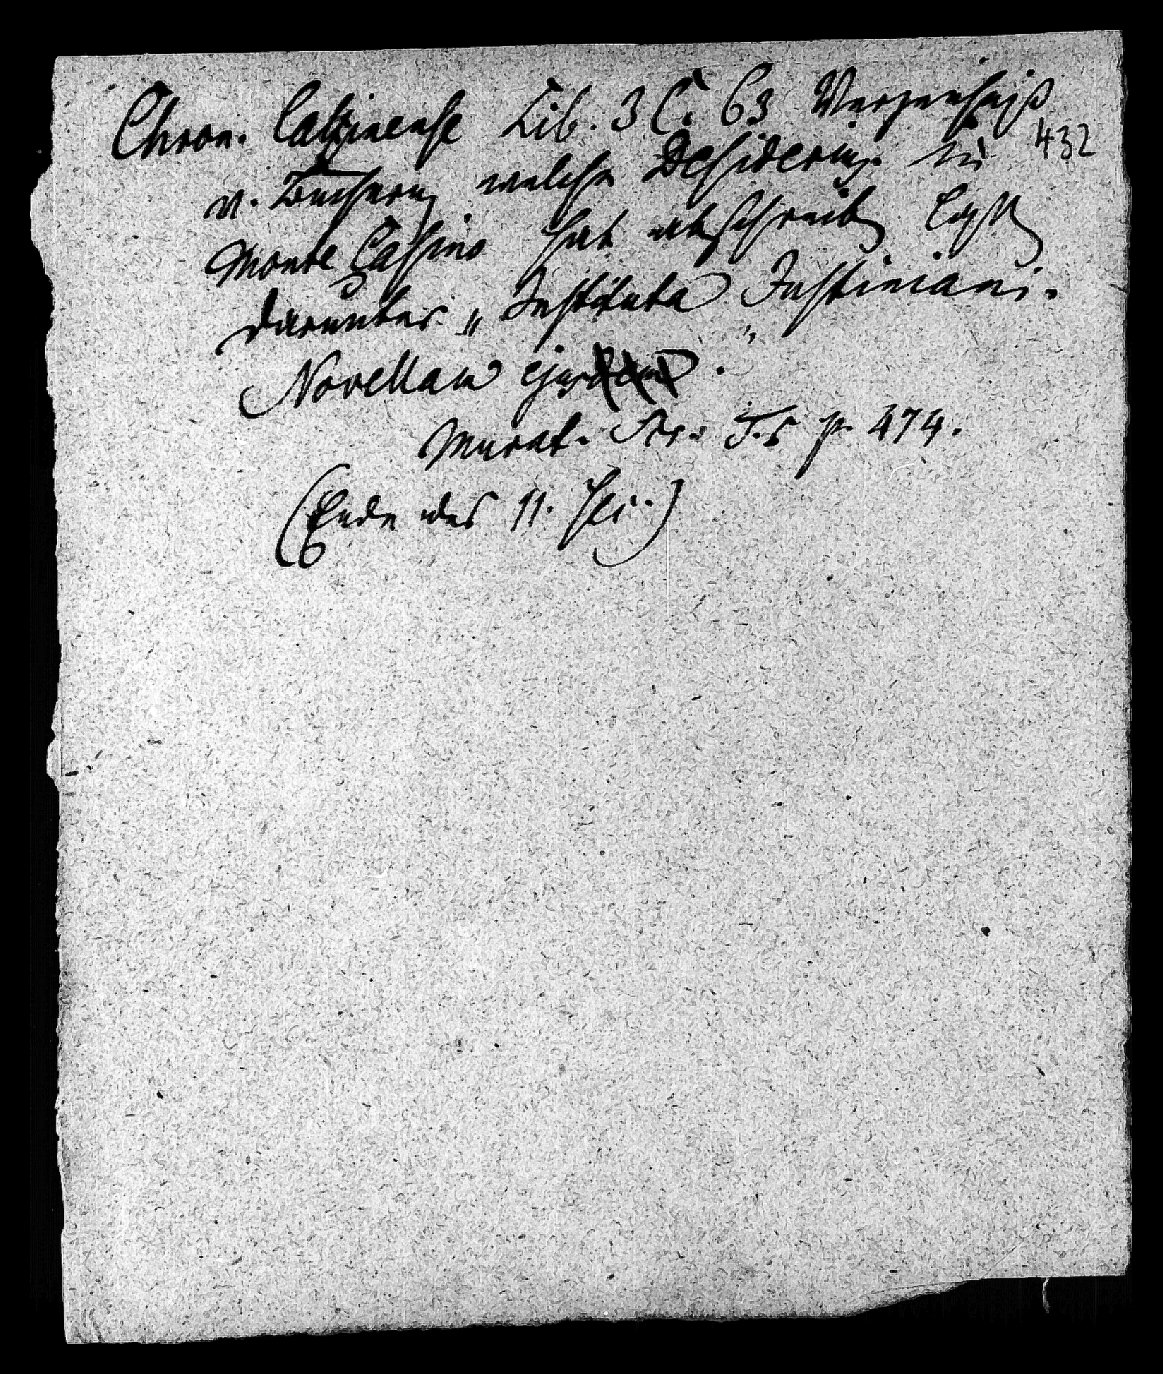 Chron. Casinense Lib. 3 C. 63 Verzeichniß
432
v. Büchern welche Desiderius in
Monte Cassino hat abschreiben lassen
darunter „Instituta Justiniani.
Novellam ejusdem."
Murat. Scr. T. 5 p. 474.
(Ende des 11. Jh.)